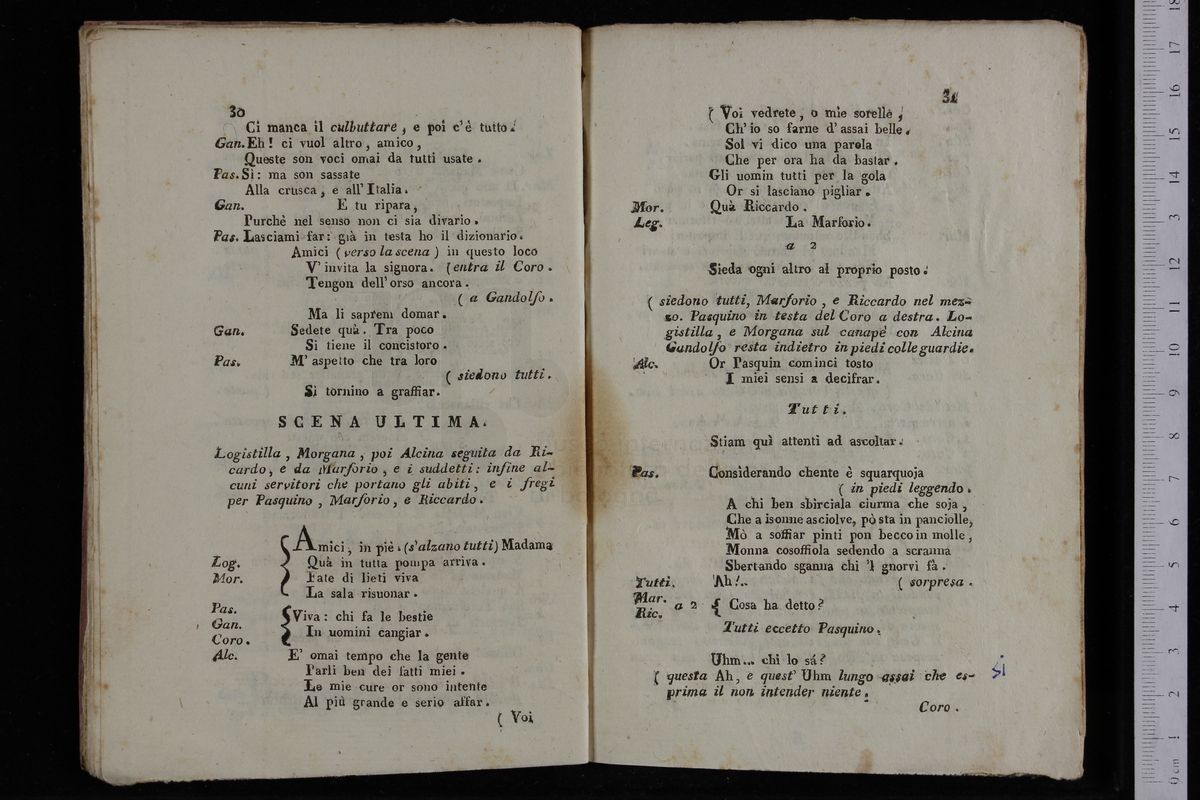 30
Ci manca il culbuttare, e poi c'è tutto.
Gan. Eh! ci vuol altro, amico,
Queste son voci omai da tutti usate.
Pas. Sì: ma son sassate
Alla crusca, e all'Italia.
Gan. E tu ripara,
Purchè nel senso non ci sia divario.
Pas. Lasciami far: già in testa ho il dizionario.
Amici (verso la scena) in questo loco
V'invita la signora. (entra il Coro.
Tengon dell'orso ancora.
(a Gandolfo.
Ma li saprem domar.
Gan. Sedete quà. Tra poco
Si tiene il concistoro.
Pas. M'aspetto che tra loro
(siedono tutti.
Si tornino a graffiar.
SCENA ULTIMA.
Logistilla, Morgana, poi Alcina seguita da Ri-
cardo, e da Marforio, e i suddetti: infine al-
cuni servitori che portano gli abiti, e i fregi
per Pasquino, Marforio, e Riccardo.
Amici, in piè. (s'alzano tutti) Madama
Log. Quà in tutta pompa arriva.
Mor. Fate di lieti viva
La sala risuonar.
Pas. Viva: chi fa le bestie
Gan. In uomini cangiar.
Coro.
Alc. E' omai tempo che la gente
Parli ben dei fatti miei.
Le mie cure or sono intente
Al più grande e serio affar.
( Voi
31
( Voi vedrete, o mie sorelle,
Ch'io so farne d'assai belle.
Sol vi dico una parola
Che per ora ha da bastar.
Gli uomin tutti per la gola
Or si lasciano pigliar.
Mor. Quà Riccardo.
Leg. La Marforio.
a 2
Sieda ogni altro al proprio posto.
( siedono tutti, Marforio, e Riccardo nel mez-
zo. Pasquino in testa del Coro a destra. Lo-
gistilla, e Morgana sul canapè con Alcina
Gandolfo resta indietro in piedi colle guardie.
Alc. Or Pasquin cominci tosto
I miei sensi a decifrar.
Tutti.
Stiam quì attenti ad ascoltar.
Pas. Considerando chente è squarquoja
( in piedi leggendo.
A chi ben sbirciala ciurma che soja,
Che a isonne asciolve, pò sta in panciolle,
Mò a soffiar pinti pon becco in molle,
Monna cosoffiola sedendo a scranna
Sbertando sganna chi 'l gnorvi fà.
Tutti. Ah!.. ( sorpresa.
Mar. Ric. a 2 { Cosa ha detto?
Tutti eccetto Pasquino.
Uhm... chi lo sá?
( questa Ah, e quest' Uhm lungo assai che es- si
prima il non intender niente.
Coro.